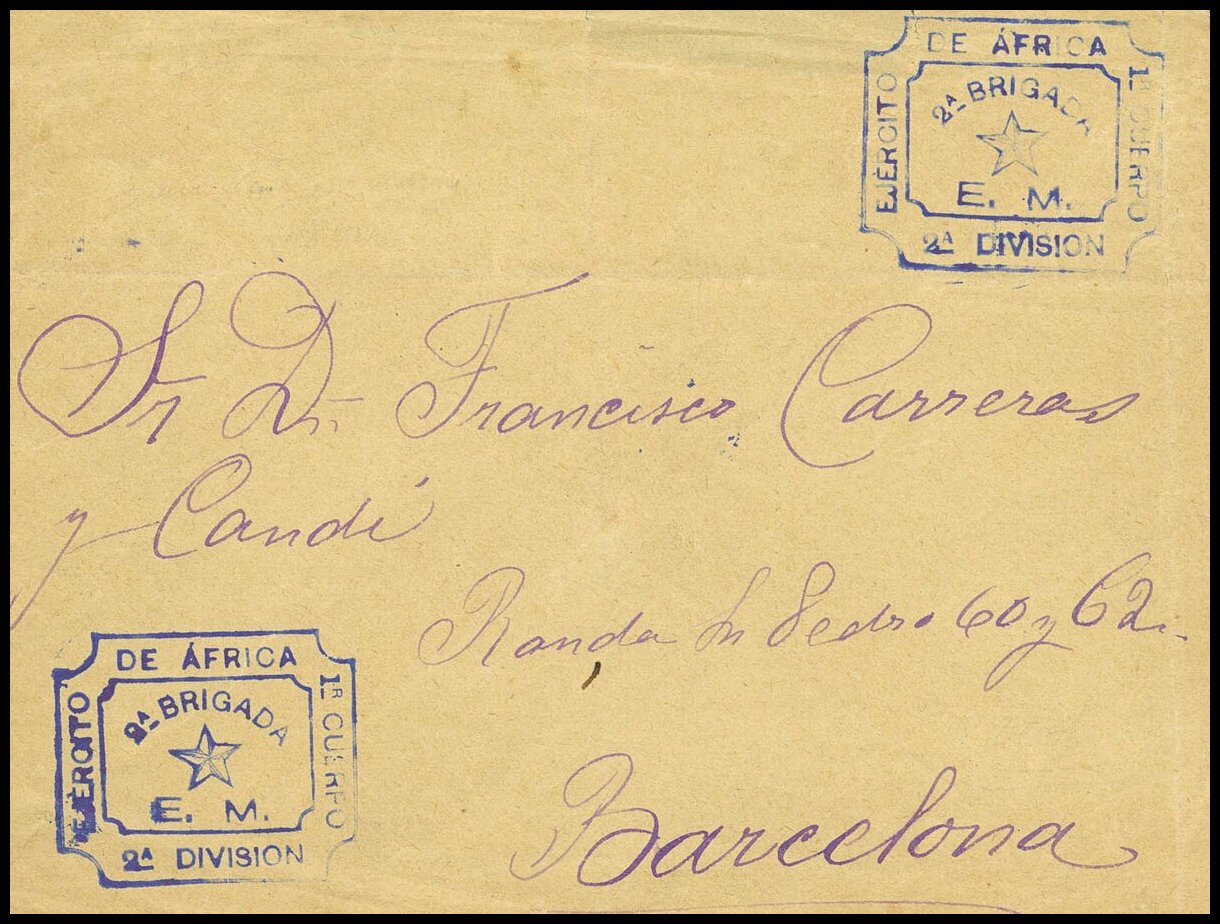 DE ÁFRICA
EJÉRCITO
1R CUERPO
2ª BRIGADA
E. M.
2ª DIVISION
Sr Dn Francisco Carreras
y Candi
Ronda Sn Pedro 60 y 62.
DE ÁFRICA
EJÉRCITO
1R CUERPO
2ª BRIGADA
E. M.
2ª DIVISION
Barcelona